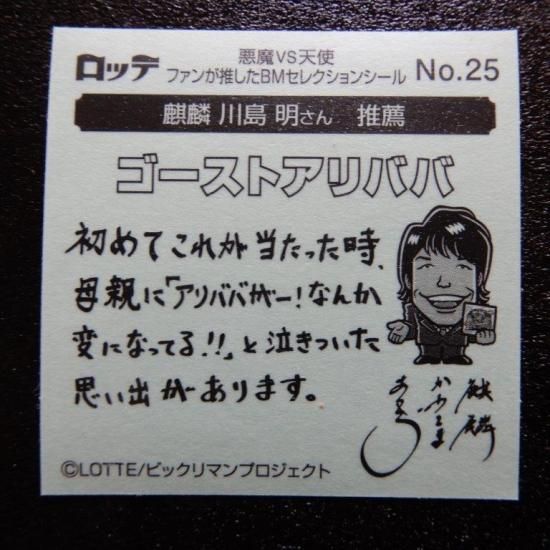 ロッテ
悪魔VS天使
ファンが推したBMセレクションシール
No.25
麒麟 川島 明さん 推薦
ゴーストアリババ
初めてこれが当たった時、
母親に「アリババがー!なんか
変になってる!!」と泣きついた
思い出があります。
麒麟
かわしま
あきら
©LOTTE/ビックリマンプロジェクト